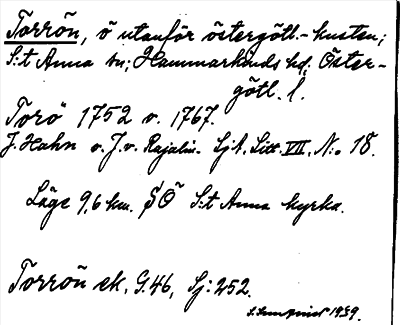 Torrön, ö utanför östergötl.-kusten;
S:t Anna sn; Hammarkinds hd; Öster-
götl. l.
Torö 1752 o. 1767.
J. Hahn o. J. v. Rajalin. Sjk. Litt. VII, N:o 18.
Läge 9,6 km. SÖ S:t Anna kyrka.
Torrön ek. G.46, Sj: 252.
1939.